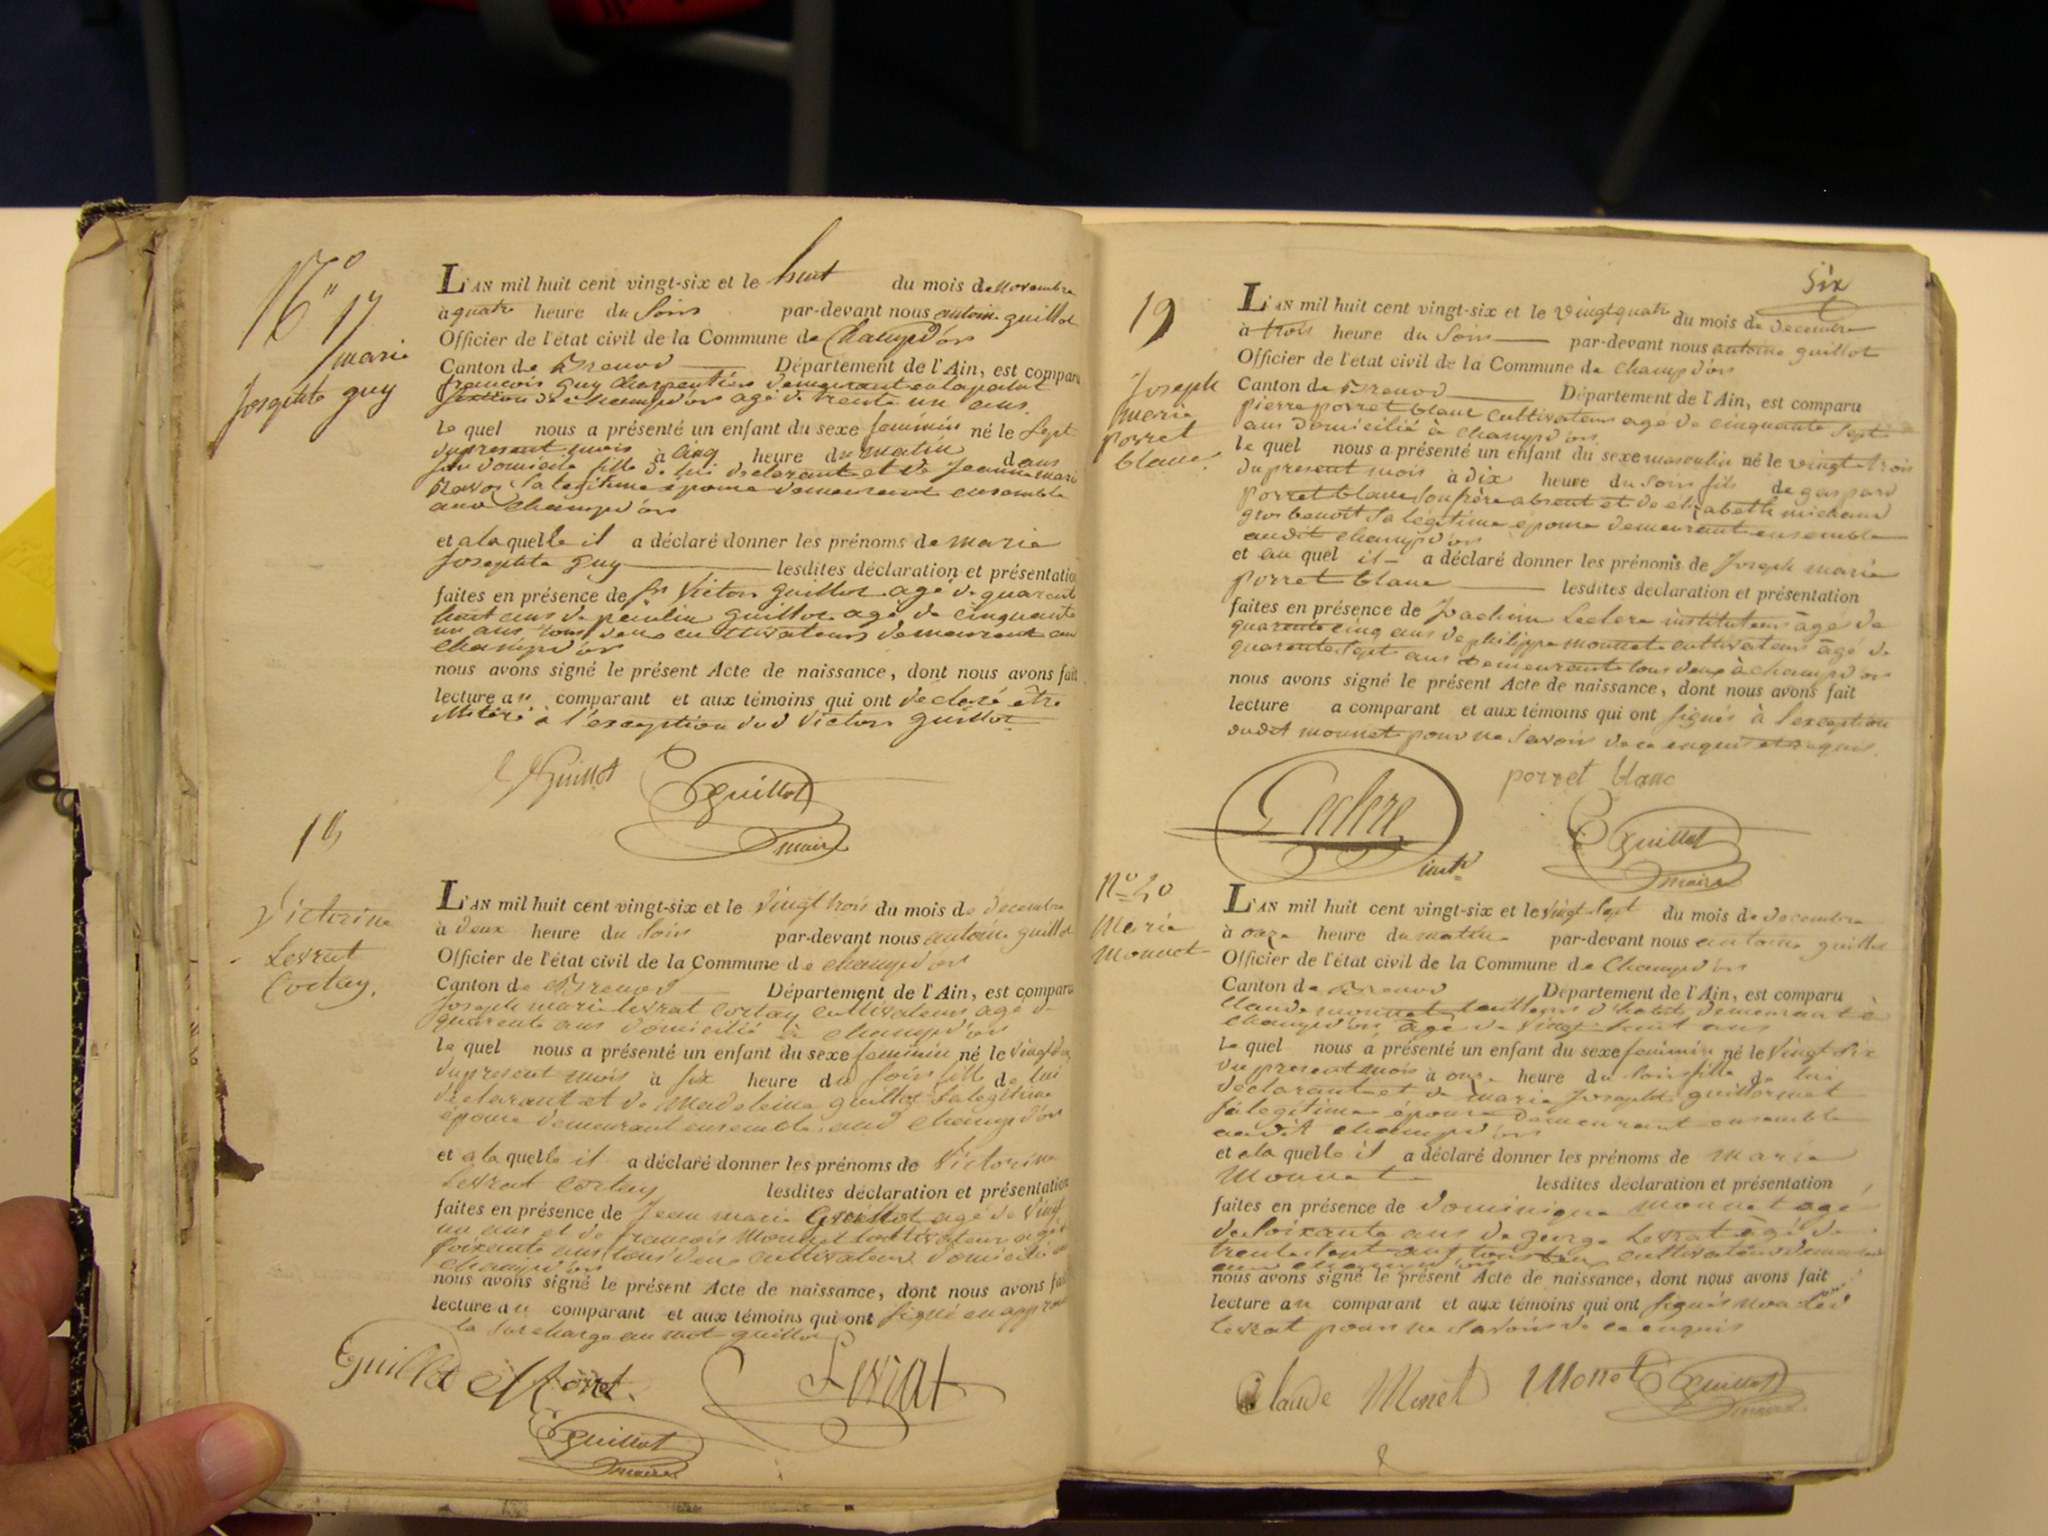 N° 17
marie
Josephte guy
L'AN mil huit cent vingt-six et le huit du mois de Novembre
à quatre heure du Soir par-devant nous antoine guillot
Officier de l'état civil de la Commune de Champd'or
Canton de Brenod Département de l'Ain, est comparu
francois guy charpentier demeurant
de champd'or agé de trente un ans
le quel nous a présenté un enfant du sexe feminin né le Sept
du present mois à cinq heure du matin dans
son domicile fille de lui declarant et de Jeanne marie
Ravos sa legitime epouse demeurant ensemble
aud champd'or
et a la quelle il a déclaré donner les prénoms de marie
Josephte guy lesdites déclaration et présentation
faites en présence de Victor guillot agé de quarente
huit ans de guillot agé de cinquante
un ans tous deux cultivateurs demeurant au
champd'or
nous avons signé le présent Acte de naissance, dont nous avons fait
lecture au comparant et aux témoins qui ont declaré être
illitéré à l'exception dud Victor guillot
Guillot Guillot
maire
18
Victorine
Levrat
Cortay.
L'AN mil huit cent vingt-six et le vingt trois du mois de decembre
à deux heure du Soir par-devant nous antoine guillot
Officier de l'état civil de la Commune de champd'or
Canton de Brenod Département de l'Ain, est comparu
Joseph marie levrat cortay cultivateur agé de
quarente ans domicilié à champd'or
le quel nous a présenté un enfant du sexe feminin né le vingt deux
du present mois à six heure du soir fille de lui
declarant et de Madeleine guillot Sa legitime
épouse demeurant ensemble aud champd'or
et a la quelle il a déclaré donner les prénoms de Victorine
Levrat cortay lesdites déclaration et présentation
faites en présence de Jean marie Guillot agé de vingt
un ans et de francois Monnet cultivateur agé de
soixante ans tous deux cultivateur domicilié a
champd'or
nous avons signé le présent Acte de naissance, dont nous avons fait
lecture au comparant et aux témoins qui ont signé en approuvant
la surcharge au mot guillot
Guillot Monet Levrat
Guillot
maire
Six
19
Joseph
marie
porret
blanc.
L'AN mil huit cent vingt-six et le vingtquatre du mois de decembre
à trois heure du Soir par-devant nous antoine guillot
Officier de l'état civil de la Commune de champd'or
Canton de Brenod Département de l'Ain, est comparu
pierre porret blanc cultivateur agé de cinquante Sept
ans domicilié à champd'or
le quel nous a présenté un enfant du sexe masculin né le vingt trois
du present mois à dix heure du Soir fils de gaspard
porret blanc son frère absent et de elisabeth michaud
gros benoit sa légitime épouse demeurant ensemble
audit champd'or
et au quel il a déclaré donner les prénoms de Joseph marie
porret blanc lesdites déclaration et présentation
faites en présence de Joachim Leclerc instituteur âgé de
quarente cinq ans de philippe monnet cultivateur âgé de
quarente Sept ans demeurant tous deux à champd'or
nous avons signé le présent Acte de naissance, dont nous avons fait
lecture a comparant et aux témoins qui ont signés à l'exception
dudit monnet pour ne Savoir de ce enquis et requis.
Leclerc porret blanc
Guillot
maire
N° 20
Marie
Monnet
L'AN mil huit cent vingt-six et le vingt Sept du mois de decembre
à onze heure du matin par-devant nous antoine guillot
Officier de l'état civil de la Commune de Champd'or
Canton de Brenod Département de l'Ain, est comparu
Claude monnet tailleur d'habits demeurant à
champd'or âgé de vingt huit ans
le quel nous a présenté un enfant du sexe feminin né le vingt Six
du present mois à onze heure du Soir fille de lui
declarant et de marie Josephte guillermet
sa legitime épouse demeurant ensemble
audit champd'or
et a la quelle il a déclaré donner les prénoms de Marie
Monnet lesdites déclaration et présentation
faites en présence de dominique monnet agé
de Soixante ans de george Levrat âgé de
trente Sept ans tous deux cultivateurs demeurant
aud champd'or
nous avons signé le présent Acte de naissance, dont nous avons fait
lecture au comparant et aux témoins qui ont signés non led
levrat pour ne Savoir de ce enquis
Claude Monet Monet Guillot
maire